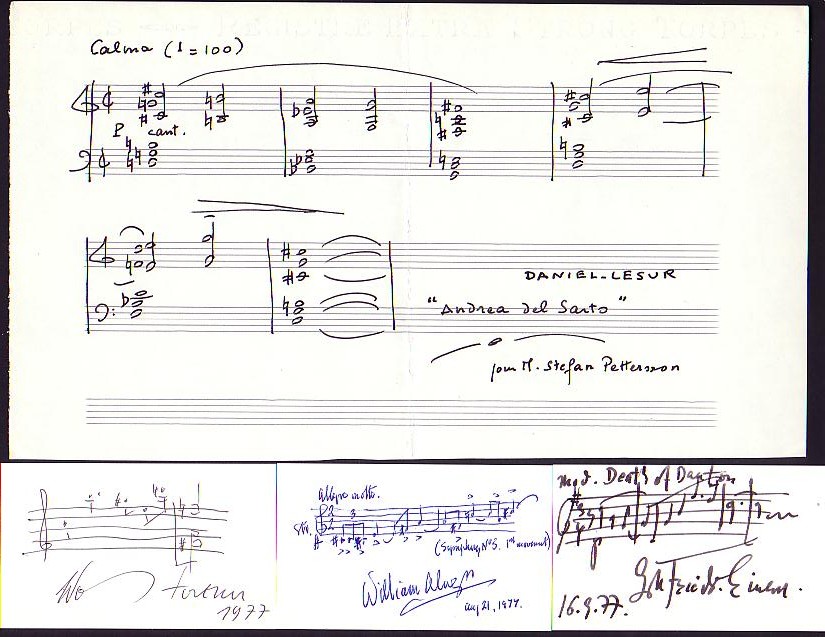 Calmo (♩ = 100)
P cant.
DANIEL-LESUR
"Andrea del Sarto"
pour M. Stefan Pettersson
1977
Allegro molto.
(Symphony No 5. 1st movement)
William Alwyn
Aug 21, 1977.
Death of Danton
p
Gottfried Einem.
16.9.77.